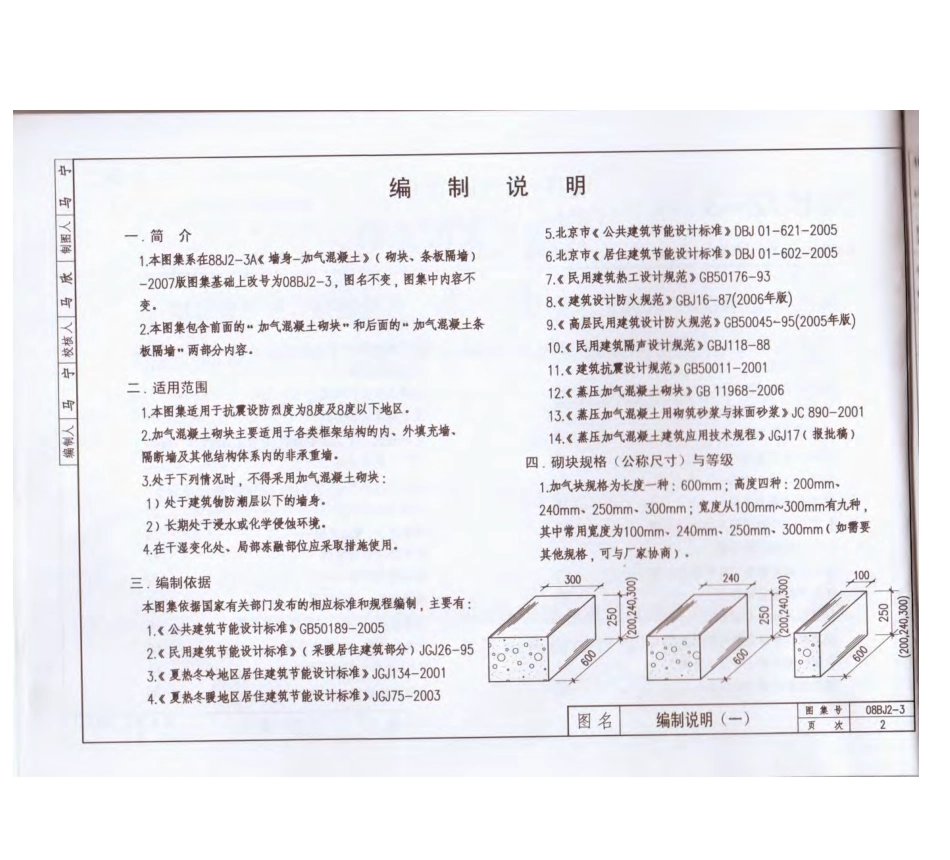 编 制 说 明
一.简 介
1.本图集系在88J2-3A《墙身-加气混凝土》(砌块、条板隔墙)
-2007版图集基础上改号为08BJ2-3,图名不变,图集中内容不
变。
2.本图集包含前面的“加气混凝土砌块”和后面的“加气混凝土条
板隔墙”两部分内容。
二.适用范围
1.本图集适用于抗震设防烈度为8度及8度以下地区。
2.加气混凝土砌块主要适用于各类框架结构的内、外填充墙、
隔断墙及其他结构体系内的非承重墙。
3.处于下列情况时,不得采用加气混凝土砌块:
1)处于建筑物防潮层以下的墙身。
2)长期处于浸水或化学侵蚀环境。
4.在干湿变化处、局部冻融部位应采取措施使用。
三.编制依据
本图集依据国家有关部门发布的相应标准和规程编制,主要有:
1.《公共建筑节能设计标准》GB50189-2005
2.《民用建筑节能设计标准》(采暖居住建筑部分)JGJ26-95
3.《夏热冬冷地区居住建筑节能设计标准》JGJ134-2001
4.《夏热冬暖地区居住建筑节能设计标准》JGJ75-2003
5.北京市《公共建筑节能设计标准》DBJ 01-621-2005
6.北京市《居住建筑节能设计标准》DBJ 01-602-2005
7.《民用建筑热工设计规范》GB50176-93
8.《建筑设计防火规范》GBJ16-87(2006年版)
9.《高层民用建筑设计防火规范》GB50045-95(2005年版)
10.《民用建筑隔声设计规范》GBJ118-88
11.《建筑抗震设计规范》GB50011-2001
12.《蒸压加气混凝土砌块》GB 11968-2006
13.《蒸压加气混凝土用砌筑砂浆与抹面砂浆》JC 890-2001
14.《蒸压加气混凝土建筑应用技术规程》JGJ17(报批稿)
四.砌块规格(公称尺寸)与等级
1.加气块规格为长度一种:600mm;高度四种:200mm、
240mm、250mm、300mm;宽度从100mm~300mm有九种,
其中常用宽度为100mm、240mm、250mm、300mm(如需要
其他规格,可与厂家协商)。
300
250
(200,240,300)
600
240
250
(200,240,300)
600
100
250
(200,240,300)
600
图名
编制说明(一)
图集号
08BJ2-3
页 次
2
制图人 马 宁
校核人 马 承
编制人 马 宁